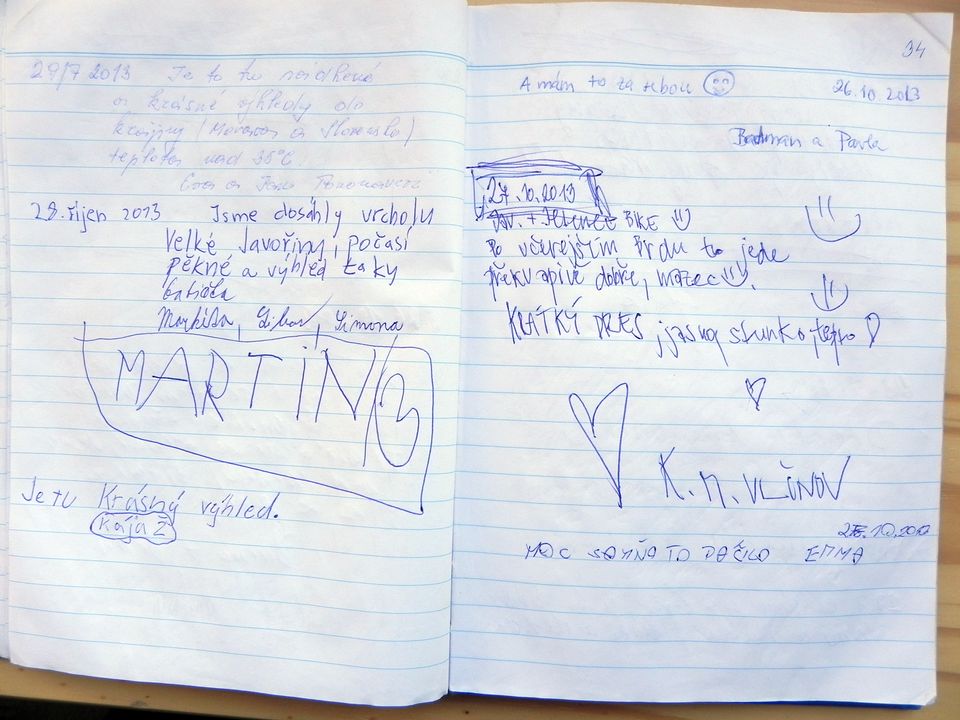 29/7 2013 Je to tu nádherné
a krásné výhledy do
krajiny (Morava a Slovensko)
teplota nad 35°C.
Eva a Jana
28. říjen 2013 Jsme dosáhly vrcholu
Velké Javořiny, počasí
pěkné a výhled taky
Markéta, Libor, Simona
MARTIN
Je tu Krásný výhled.
Kája Ž
34
A mám to za sebou
26.10.2013
Badman a Pavla
27.10.2013
BIKE
Po včerejším Brdu to jede
překvapivě dobře, mazec
KRÁTKÝ DRES, jasna slunko, teplo
K. M. VLČNOV
MOC TO EMMA